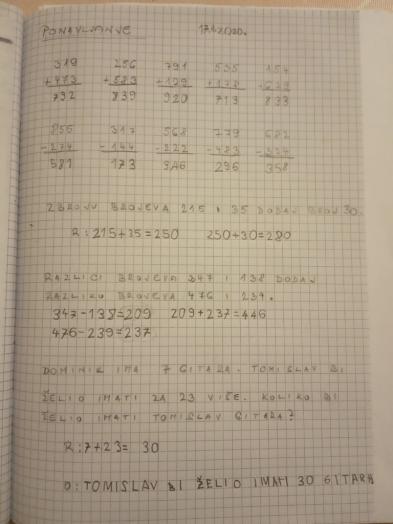 PONAVLJANJE 17.1.2020.
319 256 791 535 154
+473 +583 +129 +178 +679
792 839 920 713 833
855 317 568 779 682
-274 -144 -222 -483 -324
581 173 346 296 358
ZBROJU BROJEVA 215 I 35 DODAJ BROJ 30.
R: 215+35=250 250+30=280
RAZLICI BROJEVA 347 I 138 DODAJ
RAZLIKU BROJEVA 476 I 239.
347-138=209 209+237=446
476-239=237
DOMINIK IMA 7 GITARA. TOMISLAV BI
ŽELIO IMATI ZA 23 VIŠE. KOLIKO BI
ŽELIO IMATI TOMISLAV GITARA?
R: 7+23= 30
O: TOMISLAV BI ŽELIO IMATI 30 GITARA